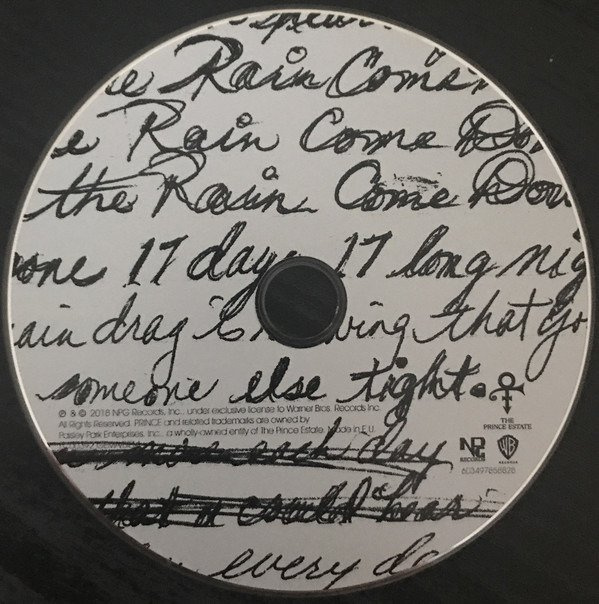 the Rain Come
the Rain Come Dow
the Rain Come Dow
one 17 days, 17 long nig
ain drag is knowing that yo
someone else tight.
℗ & © 2018 NPG Records, Inc., under exclusive license to Warner Bros. Records Inc.
All Rights Reserved. PRINCE and related trademarks are owned by
Paisley Park Enterprises, Inc., a wholly-owned entity of The Prince Estate. Made in E.U.
THE
PRINCE ESTATE
NPG
RECORDS
WB
603497858828
each day
that could hear
every da